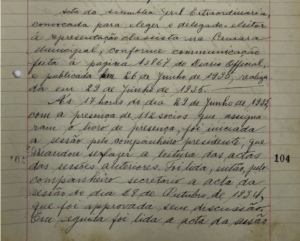 Acta da Assembléa Geral Extraordinaria,
convocada para eleger o delegado eleitor
á representação classista na Camara
Municipal, conforme communicação
feita á pagina 13867 do Diario Official,
e publicada em 26 de Junho de 1935, realiza
da em 29 de Junho de 1935.
Ás 17 horas do dia 29 de Junho de 1935,
com a presença de 112 socios que assigna
ram o livro de presença, foi iniciada
a sessão pelo companheiro presidente, que
mandou se fazer a leitura das actas
das sessões anteriores. Foi lida, então, pelo
companheiro secretario a acta da
sessão do dia 28 de Outubro de 1934,
que foi approvada sem discussão.
Em seguida foi lida a acta da sessão
104